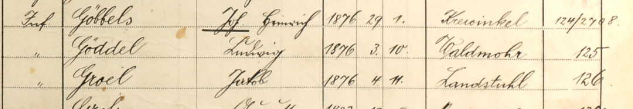 Inf. Göbbels Joh Heinrich 1876 29. 1. Krewinkel 124/2798.
" Göddel Ludwig 1876 3. 10. Waldmohr 125
" Groel Jakob 1876 4. 11. Landstuhl 126